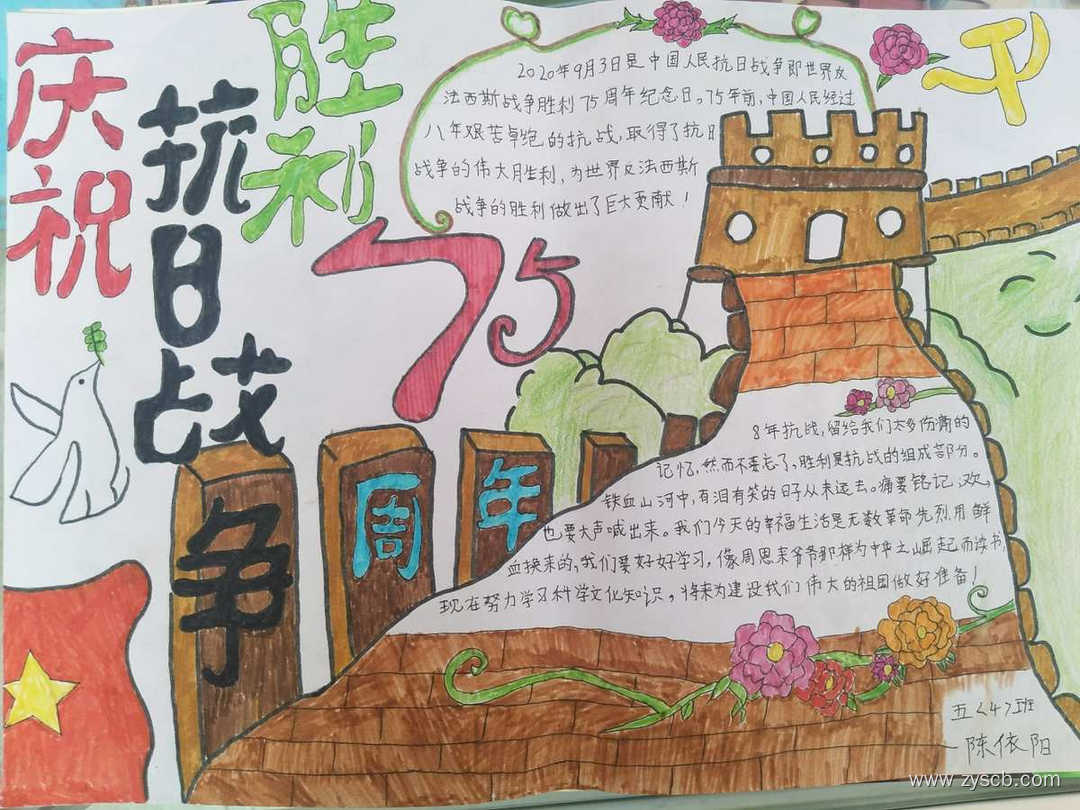 庆祝
抗日战争
胜利
75
周年
2020年9月3日是中国人民抗日战争即世界反
法西斯战争胜利75周年纪念日。75年前,中国人民经过
八年艰苦卓绝的抗战,取得了抗日
战争的伟大胜利,为世界反法西斯
战争的胜利做出了巨大贡献!
8年抗战,留给我们太多伤痛的
记忆,然而不要忘了,胜利是抗战的组成部分。
铁血山河中,有泪有笑的日子从未远去。痛要铭记,欢
也要大声喊出来。我们今天的幸福生活是无数革命先烈用鲜
血换来的,我们要好好学习,像周恩来爷爷那样为中华之崛起而读书,
现在努力学习科学文化知识,将来为建设我们伟大的祖国做好准备!
五〈4〉班
陈依阳
www.zyscb.com